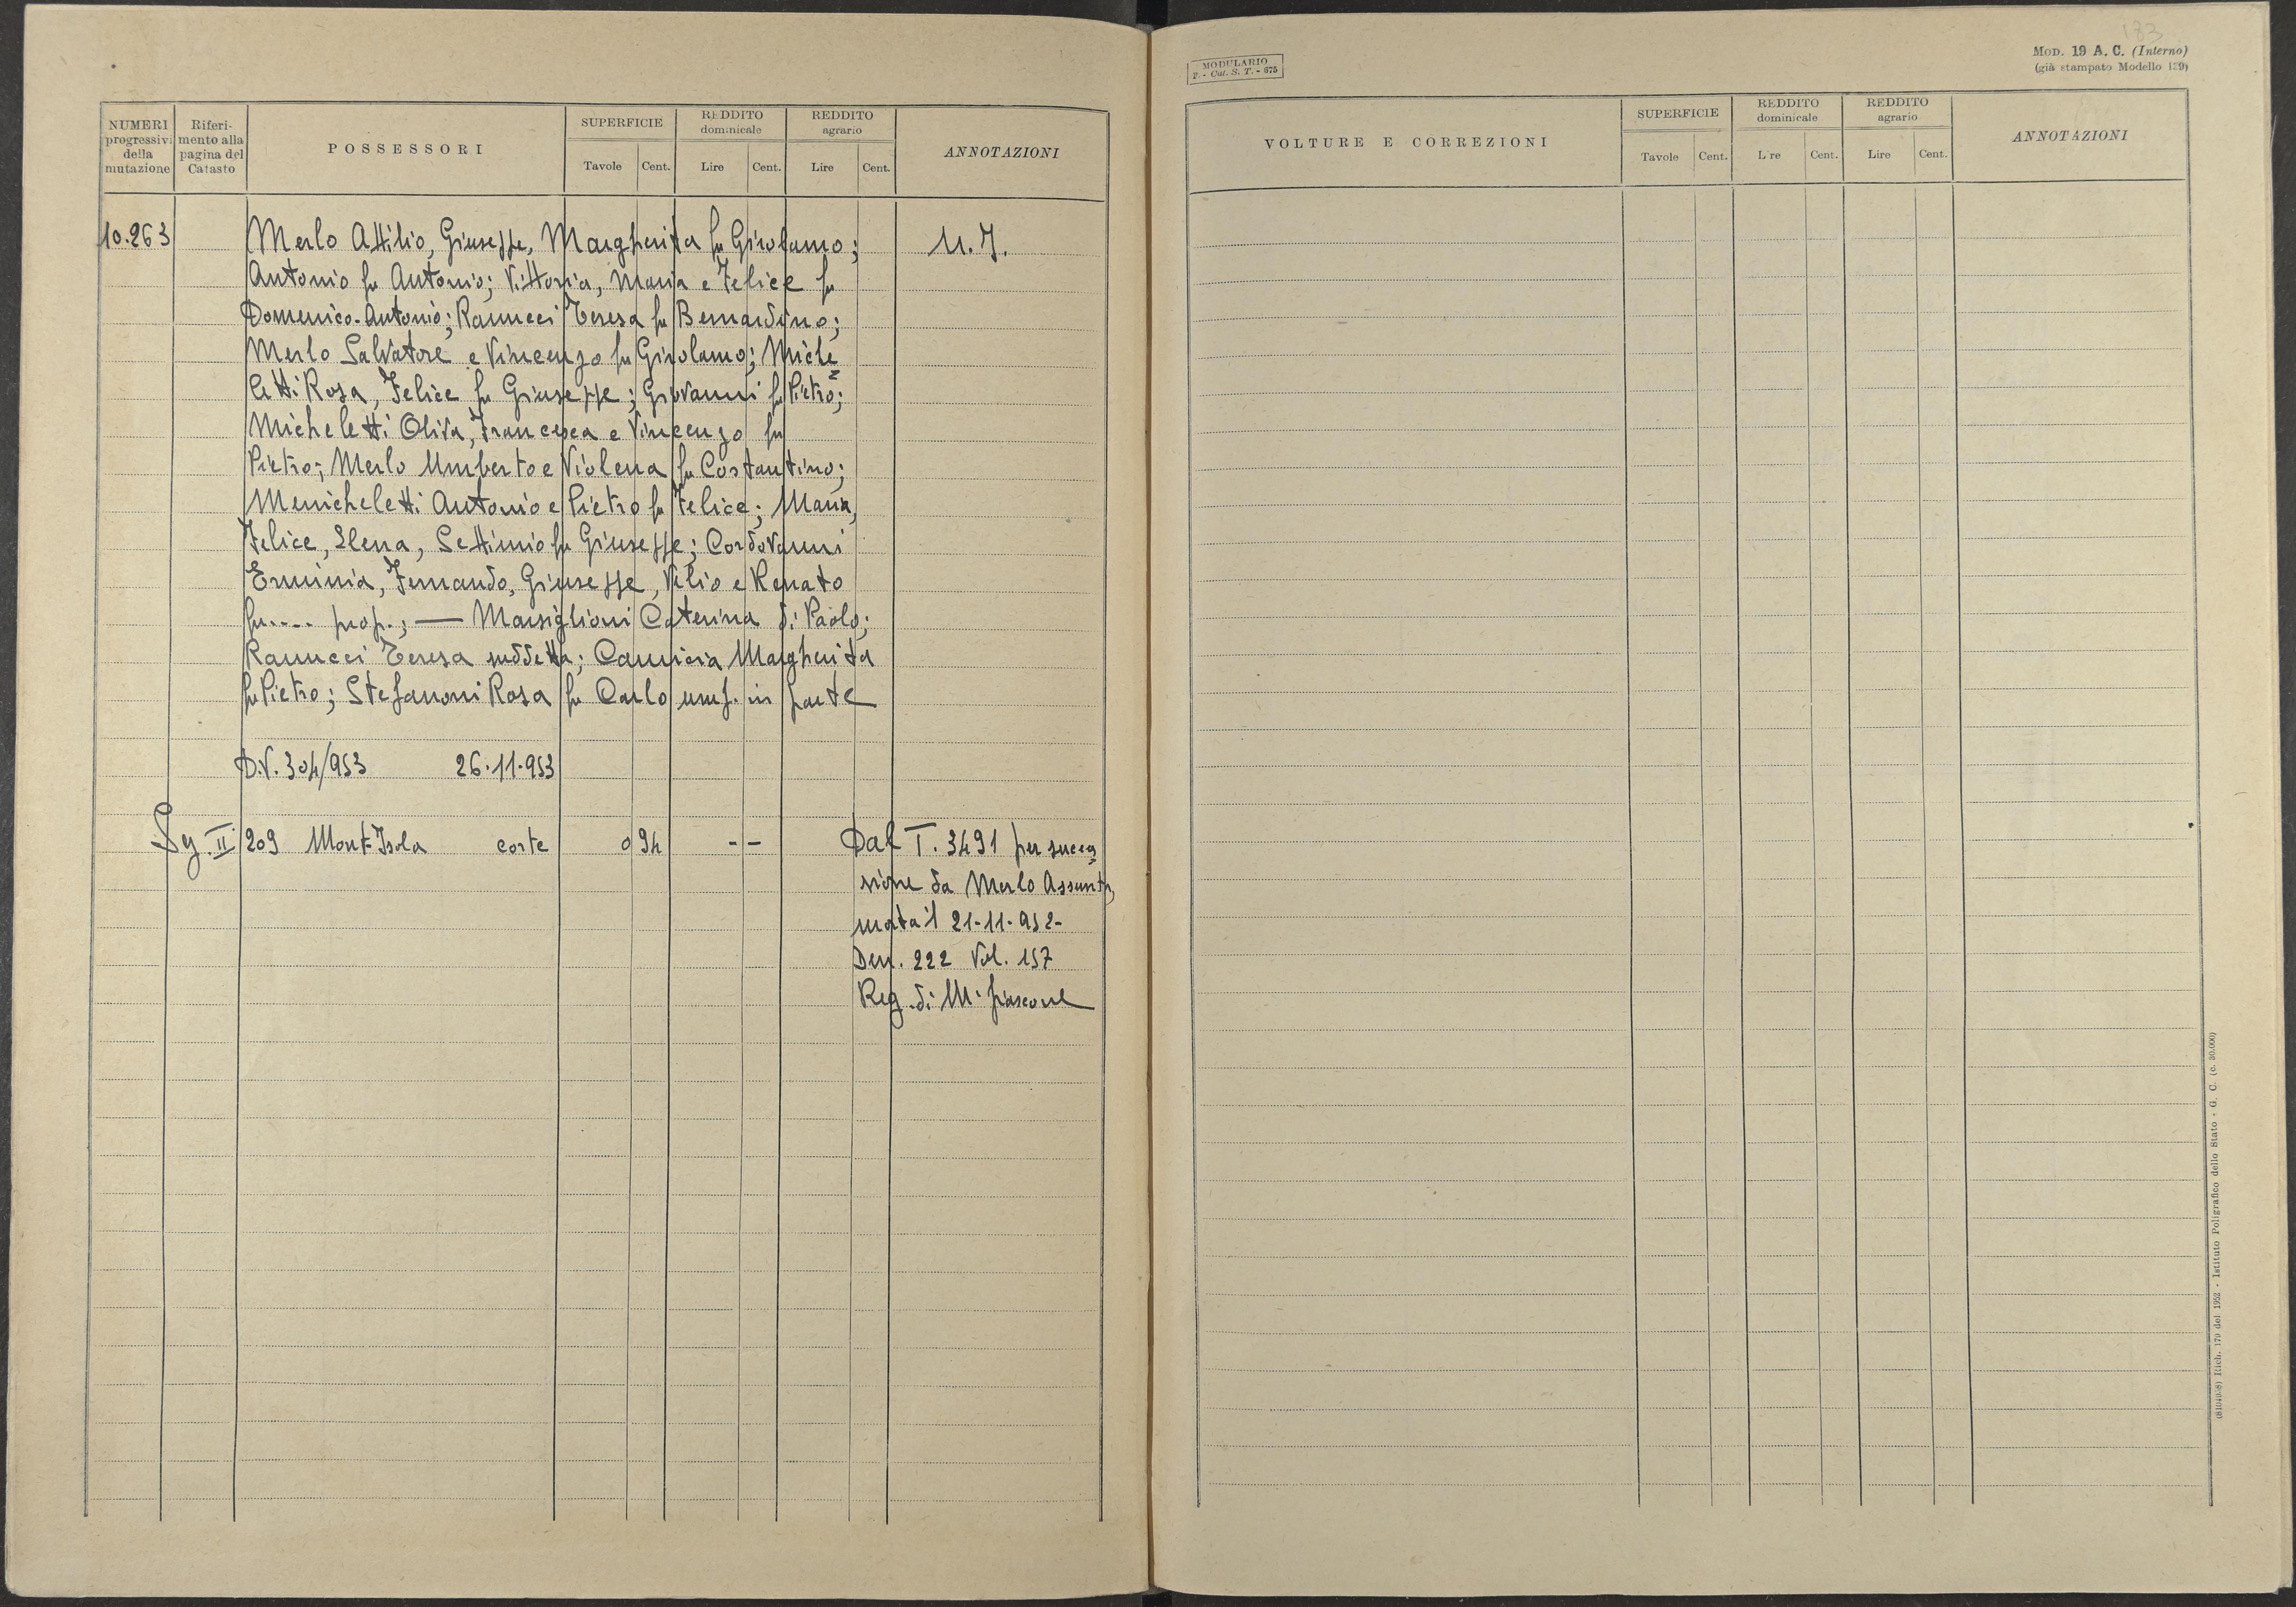 NUMERI progressivi della mutazione
Riferimento alla pagina del Catasto
POSSESSORI
SUPERFICIE
Tavole Cent.
REDDITO dominicale
Lire Cent.
REDDITO agrario
Lire Cent.
ANNOTAZIONI
10.263 Merlo Attilio, Giuseppe, Margherita fu Girolamo; U.I.
Antonio fu Antonio; Vittoria, Maria e Felice fu
Domenico-Antonio; Rannucci Teresa fu Bernardino;
Merlo Salvatore e Vincenzo fu Girolamo; Miche=
letti Rosa, Felice fu Giuseppe; Giovanni fu Pietro;
Micheletti Oliva, Francesca e Vincenzo fu
Pietro; Merlo Umberto e Violena fu Costantino;
Menicheletti Antonio e Pietro fu Felice; Maria,
Felice, Elena, Settimio fu Giuseppe; Cordovanni
Erminia, Fernando, Giuseppe, Velio e Renato
fu.... prop.; — Marsiglioni Caterina di Paolo;
Rannucci Teresa suddetta; Camicia Margherita
fu Pietro; Stefanoni Rosa fu Carlo usuf. in parte
D.V. 304/953 26.11.953
Sy. II 209 Mont-Isola corte 0 94 -- Dal T. 3491 per succes
sione da Merlo Assunta,
morta il 21-11-952-
Den. 222 Vol. 157
Reg. di M. fiascone
183
MODULARIO
F. - Cat. S. T. - 675
MOD. 19 A. C. (Interno)
(già stampato Modello 139)
VOLTURE E CORREZIONI
SUPERFICIE
Tavole Cent.
REDDITO dominicale
L re Cent.
REDDITO agrario
Lire Cent.
ANNOTAZIONI
Rich. 170 del 1952 - Istituto Poligrafico dello Stato - G. C. (c. 30.000)